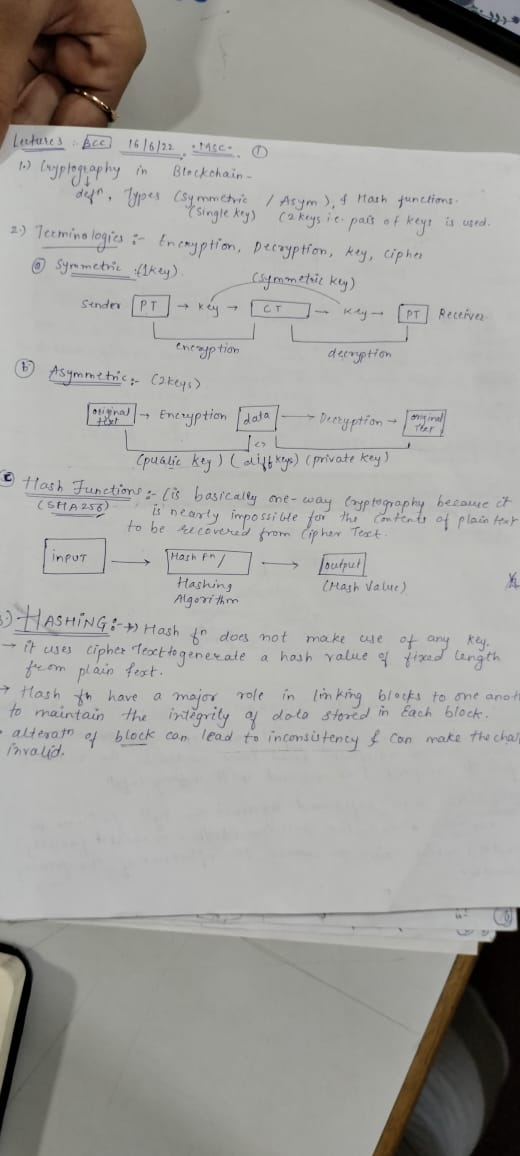 Lectures : BCC 16/6/22 . MSC . ①
1.) Cryptography in Blockchain -
↓
defn, Types (symmetric / Asym), & Hash functions.
(single key) (2 keys i.e. pair of keys is used.
2.) Terminologies :- Encryption, Decryption, key, cipher
ⓐ Symmetric :(1key).
(symmetric key)
Sender PT → key → CT → key → PT Receiver
encryption decryption
ⓑ Asymmetric :- (2keys)
original text → Encryption data → Decryption → original Text
(public key) (diff keys) (private key)
ⓒ Hash Functions :- (is basically one-way cryptography because it
(SHA 256) is nearly impossible for the contents of plain text
to be recovered from Cipher Text.
INPUT → Hash Fn / → output
Hashing (Hash Value)
Algorithm
3) HASHING :- → Hash fn does not make use of any key.
→ it uses cipher Text to generate a hash value of fixed length
from plain text.
→ Hash fn have a major role in linking blocks to one anot
to maintain the integrity of data stored in Each block.
alteratn of block can lead to inconsistency & can make the chai
invalid.